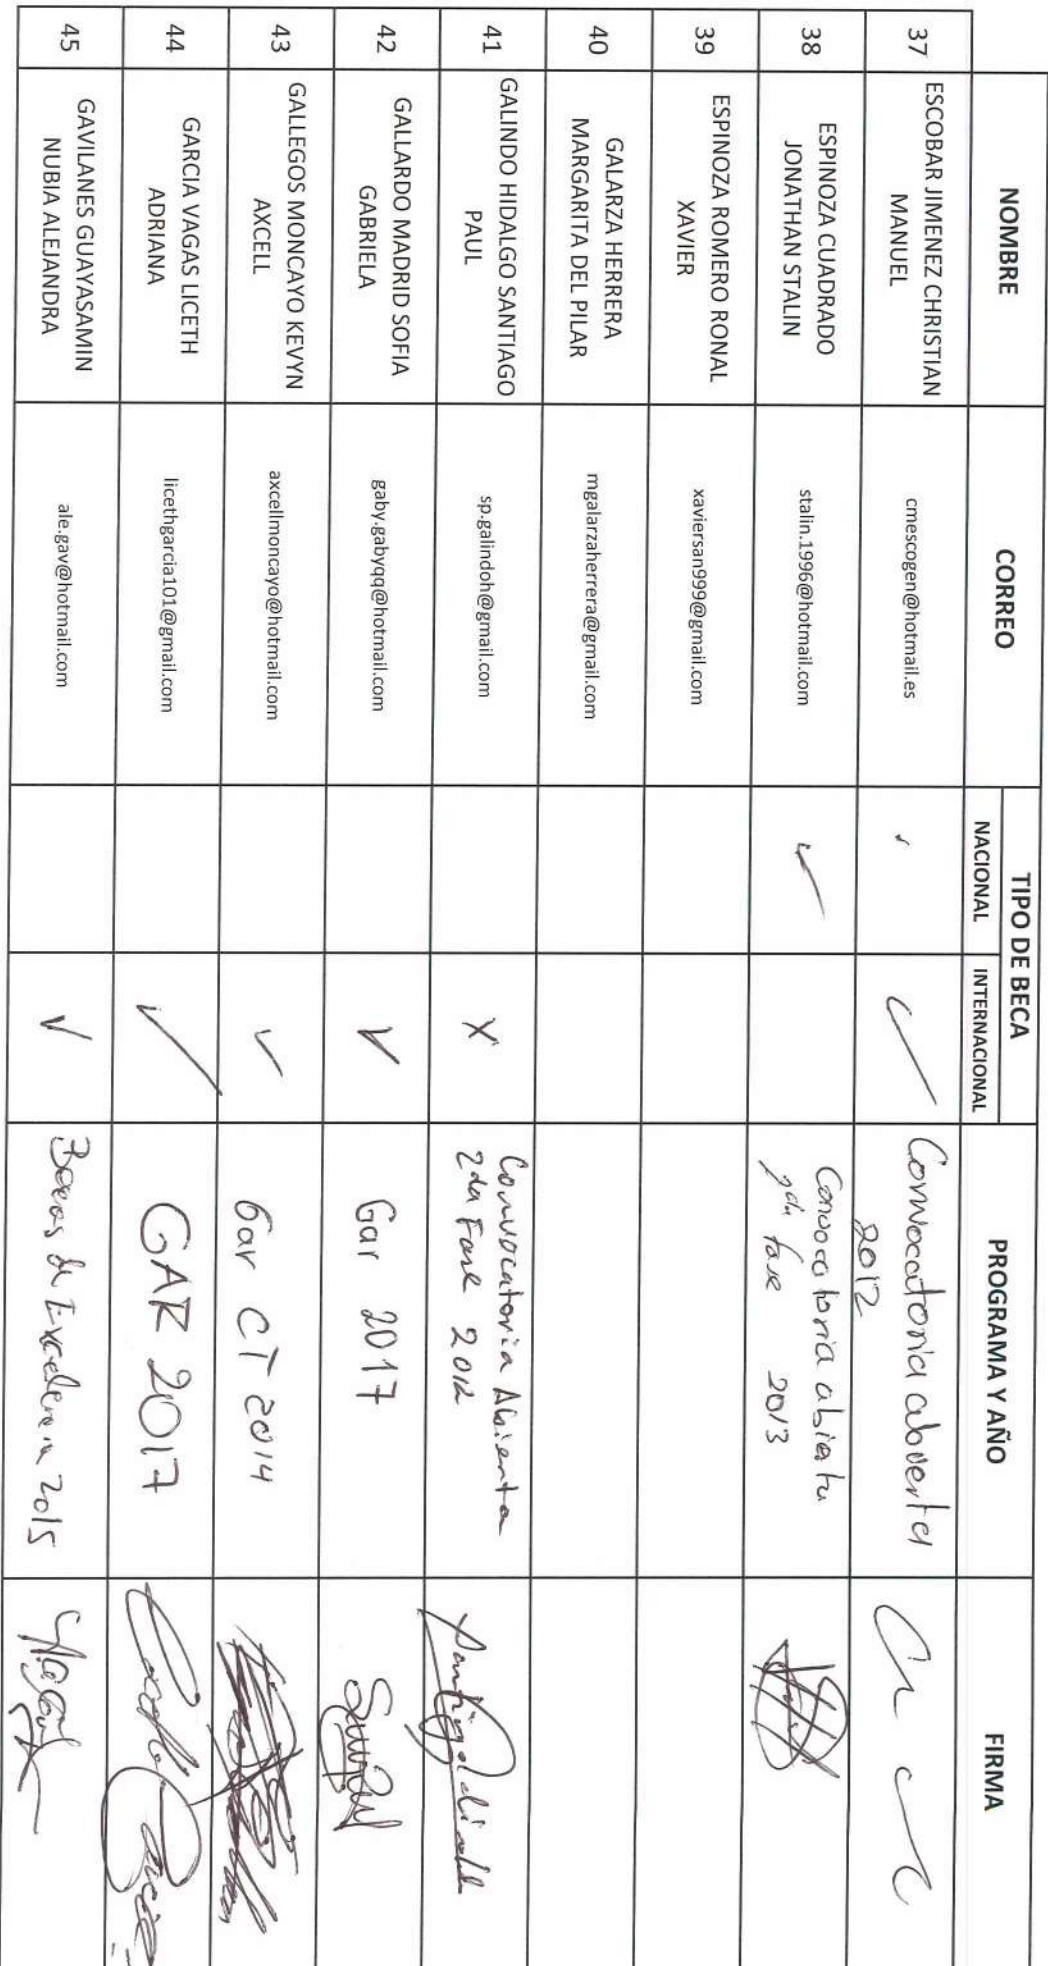 NOMBRE CORREO TIPO DE BECA PROGRAMA Y AÑO FIRMA
NACIONAL INTERNACIONAL
37 ESCOBAR JIMENEZ CHRISTIAN
MANUEL
cmescogen@hotmail.es
✓
Convocatoria abierta
2012
38 ESPINOZA CUADRADO
JONATHAN STALIN
stalin.1996@hotmail.com
✓
Convocatoria abierta
2da fase 2013
39 ESPINOZA ROMERO RONAL
XAVIER
xaviersan999@gmail.com
40 GALARZA HERRERA
MARGARITA DEL PILAR
mgalarzaherrera@gmail.com
41 GALINDO HIDALGO SANTIAGO
PAUL
sp.galindoh@gmail.com
X
Convocatoria Abierta
2da Fase 2012
42 GALLARDO MADRID SOFIA
GABRIELA
gaby.gabyqq@hotmail.com
✓
Gar 2017
43 GALLEGOS MONCAYO KEVYN
AXCELL
axcellmoncayo@hotmail.com
✓
Gar CT 2014
44 GARCIA VAGAS LICETH
ADRIANA
licethgarcia101@gmail.com
✓
GAR 2017
45 GAVILANES GUAYASAMIN
NUBIA ALEJANDRA
ale.gav@hotmail.com
✓
Becas de Excelencia 2015